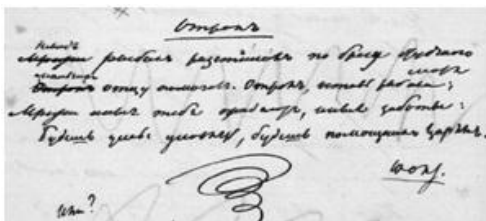 Отрокъ
Неводъ
рыбакъ разстилалъ по брегу студенаго
моря
Отрокъ отцу помогалъ. Отрокъ, оставь рыбака;
Мрежи иныя тебя ожидаютъ, иныя заботы:
Будешь умы уловлять, будешь помощникъ Царямъ.
10 окт.